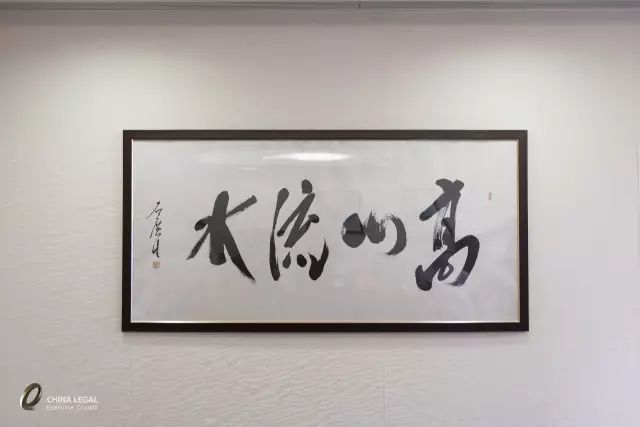 高山流水
CHINA LEGAL
Executive Council